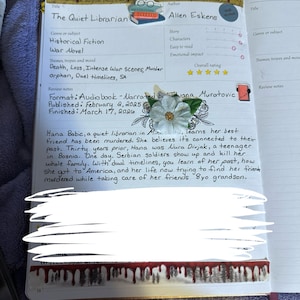 The Quiet Librarian
Allen Eskens
Genre or subject
Historical Fiction
War Novel
Themes, tropes and mood
Death, Loss, Intense War Scenes, Murder
orphan, Dual timelines, SA
Story
Characters
Easy to read
Emotional impact
Overall rating
Review notes
Format: Audiobook - Narra Muratovic
Published: February 2025
Finished: March 17, 2026
Hana Babic, a quiet librarian in learns her best
friend has been murdered. She believes it's connected to their
past. Thirty years prior, Hana was Nura Divjak, a teenager
in Bosnia. One day, Serbian soldiers show up and kill her
whole family. With dual timelines, you learn of her past, how
she got to America, and her life now trying to find her friends
murdered while taking care of her friends' 8yo grandson.